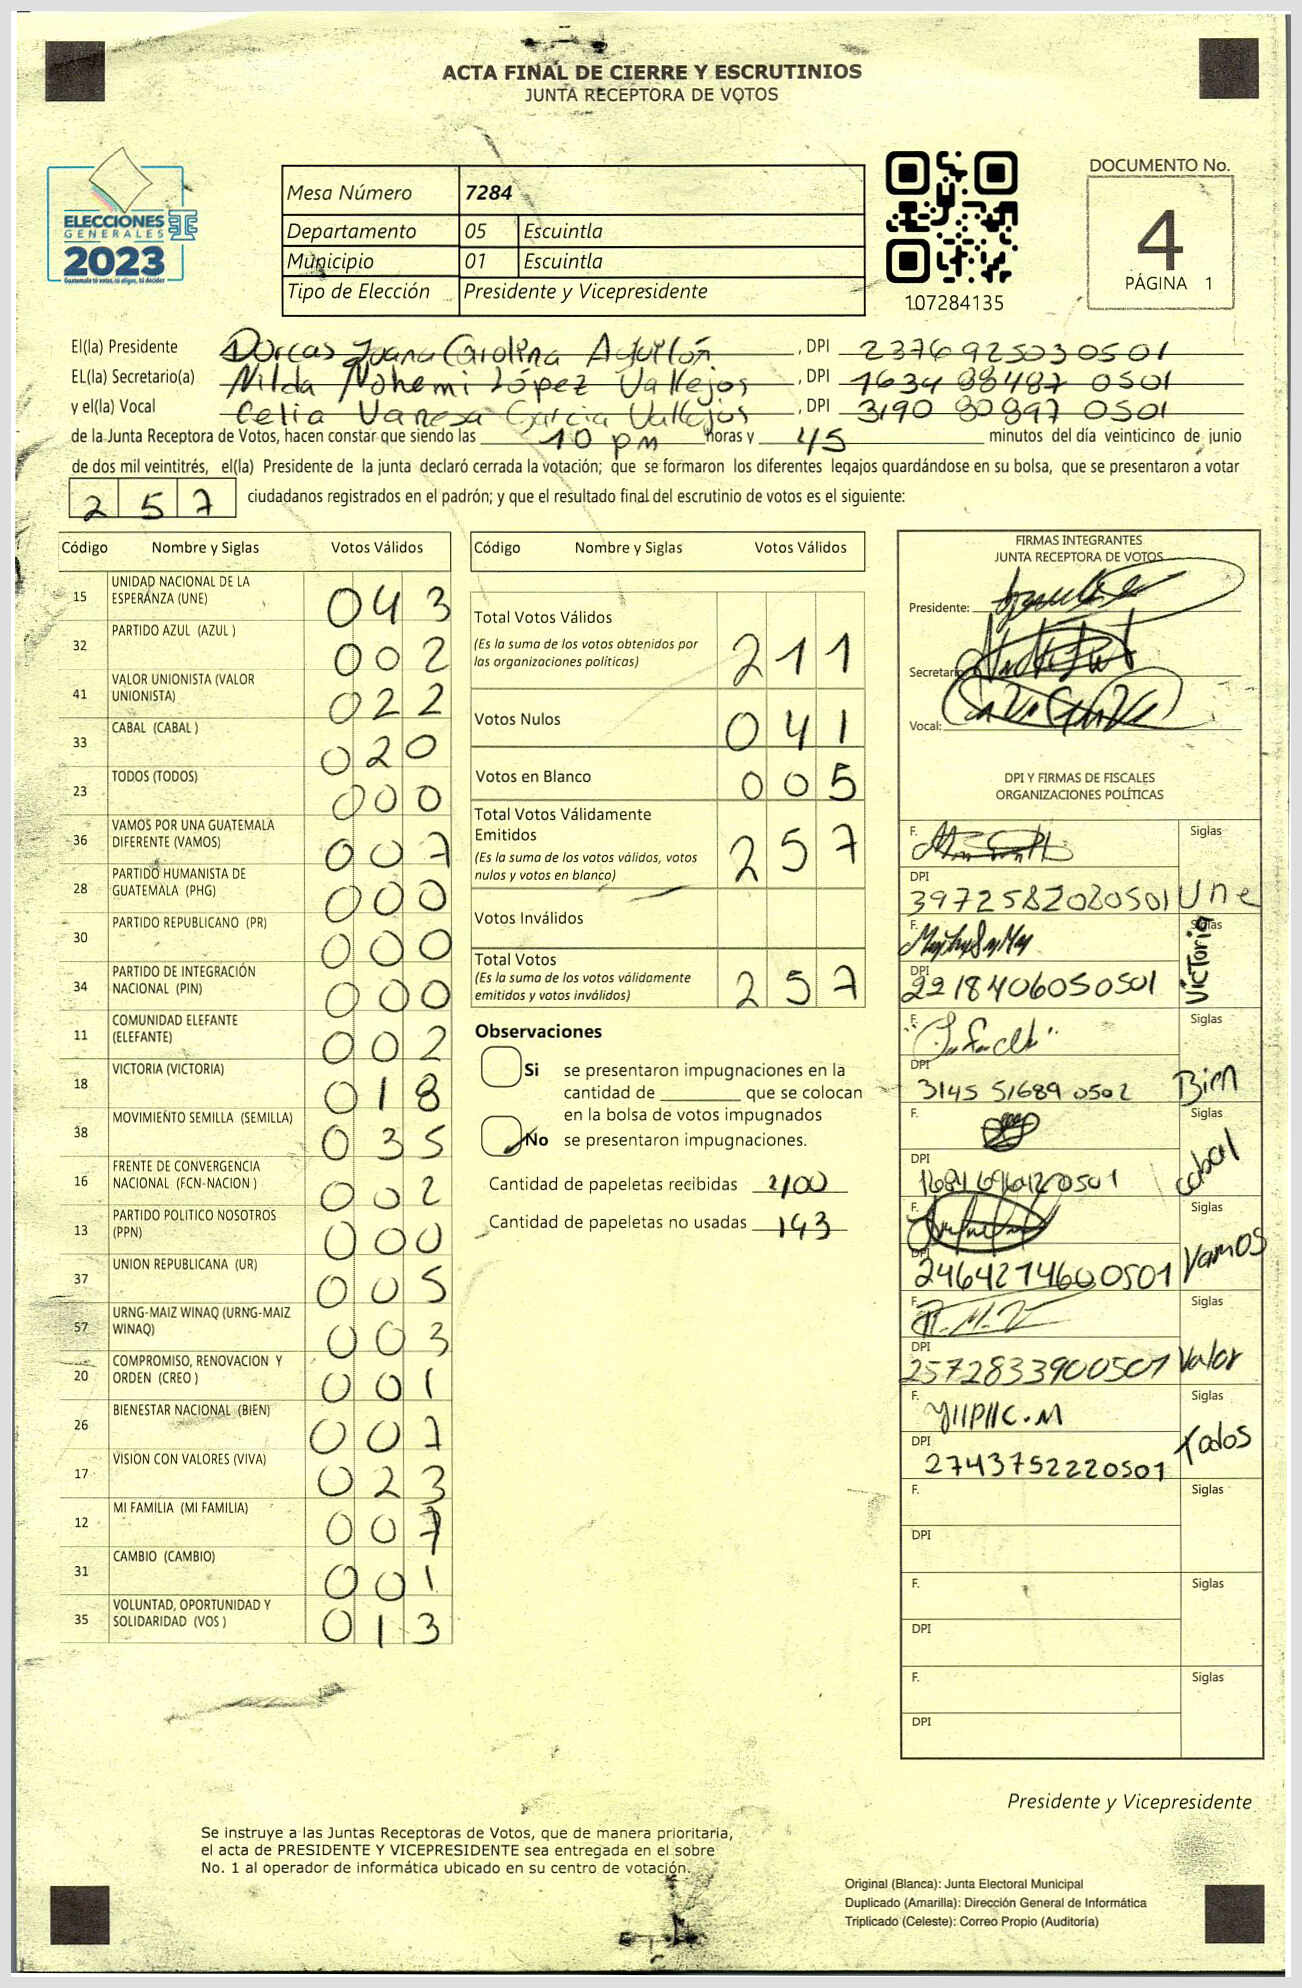 ACTA FINAL DE CIERRE Y ESCRUTINIOS
JUNTA RECEPTORA DE VOTOS
ELECCIONES
GENERALES
2023
Mesa Número 7284
Departamento 05 Escuintla
Municipio 01 Escuintla
Tipo de Elección Presidente y Vicepresidente
107284135
DOCUMENTO No.
4
PÁGINA 1
El(la) Presidente Dorcas Juana Carolina Aguilón , DPI 2376925030501
EL(la) Secretario(a) Nilda Nohemi López Vallejos , DPI 1634 88487 0501
y el(la) Vocal Celia Vanesa Garcia Vallejos , DPI 3190 80897 0501
de la Junta Receptora de Votos, hacen constar que siendo las 10 pm horas y 45 minutos del día veinticinco de junio
de dos mil veintitrés, el(la) Presidente de la junta declaró cerrada la votación; que se formaron los diferentes legajos guardándose en su bolsa, que se presentaron a votar
257 ciudadanos registrados en el padrón; y que el resultado final del escrutinio de votos es el siguiente:
Código Nombre y Siglas Votos Válidos
15 UNIDAD NACIONAL DE LA ESPERANZA (UNE) 043
32 PARTIDO AZUL (AZUL ) 002
41 VALOR UNIONISTA (VALOR UNIONISTA) 022
33 CABAL (CABAL ) 020
23 TODOS (TODOS) 000
36 VAMOS POR UNA GUATEMALA DIFERENTE (VAMOS) 007
28 PARTIDO HUMANISTA DE GUATEMALA (PHG) 000
30 PARTIDO REPUBLICANO (PR) 000
34 PARTIDO DE INTEGRACIÓN NACIONAL (PIN) 000
11 COMUNIDAD ELEFANTE (ELEFANTE) 002
18 VICTORIA (VICTORIA) 018
38 MOVIMIENTO SEMILLA (SEMILLA) 035
16 FRENTE DE CONVERGENCIA NACIONAL (FCN-NACION ) 002
13 PARTIDO POLITICO NOSOTROS (PPN) 000
37 UNION REPUBLICANA (UR) 005
57 URNG-MAIZ WINAQ (URNG-MAIZ WINAQ) 003
20 COMPROMISO, RENOVACION Y ORDEN (CREO ) 001
26 BIENESTAR NACIONAL (BIEN) 007
17 VISION CON VALORES (VIVA) 023
12 MI FAMILIA (MI FAMILIA) 007
31 CAMBIO (CAMBIO) 001
35 VOLUNTAD, OPORTUNIDAD Y SOLIDARIDAD (VOS ) 013
Código Nombre y Siglas Votos Válidos
Total Votos Válidos 211
(Es la suma de los votos obtenidos por
las organizaciones políticas)
Votos Nulos 041
Votos en Blanco 005
Total Votos Válidamente
Emitidos 257
(Es la suma de los votos válidos, votos
nulos y votos en blanco)
Votos Inválidos
Total Votos 257
(Es la suma de los votos válidamente
emitidos y votos inválidos)
Observaciones
Si se presentaron impugnaciones en la
cantidad de ________ que se colocan
en la bolsa de votos impugnados
No se presentaron impugnaciones.
Cantidad de papeletas recibidas 400
Cantidad de papeletas no usadas 143
FIRMAS INTEGRANTES
JUNTA RECEPTORA DE VOTOS
Presidente:
Secretario:
Vocal:
DPI Y FIRMAS DE FISCALES
ORGANIZACIONES POLÍTICAS
F. Siglas
DPI 3972582080501 Une
F. Siglas
DPI 2218406050501 Victoria
F. Siglas
DPI 3145 51689 0502 Bien
F. Siglas
DPI Cabal
F. Siglas
DPI 2464274600501 Vamos
F. Siglas
DPI 2572833900501 Valor
F. Siglas
DPI 2743752220501 Todos
F. Siglas
DPI
F. Siglas
DPI
F. Siglas
DPI
Presidente y Vicepresidente
Se instruye a las Juntas Receptoras de Votos, que de manera prioritaria,
el acta de PRESIDENTE Y VICEPRESIDENTE sea entregada en el sobre
No. 1 al operador de informática ubicado en su centro de votación.
Original (Blanca): Junta Electoral Municipal
Duplicado (Amarilla): Dirección General de Informática
Triplicado (Celeste): Correo Propio (Auditoría)